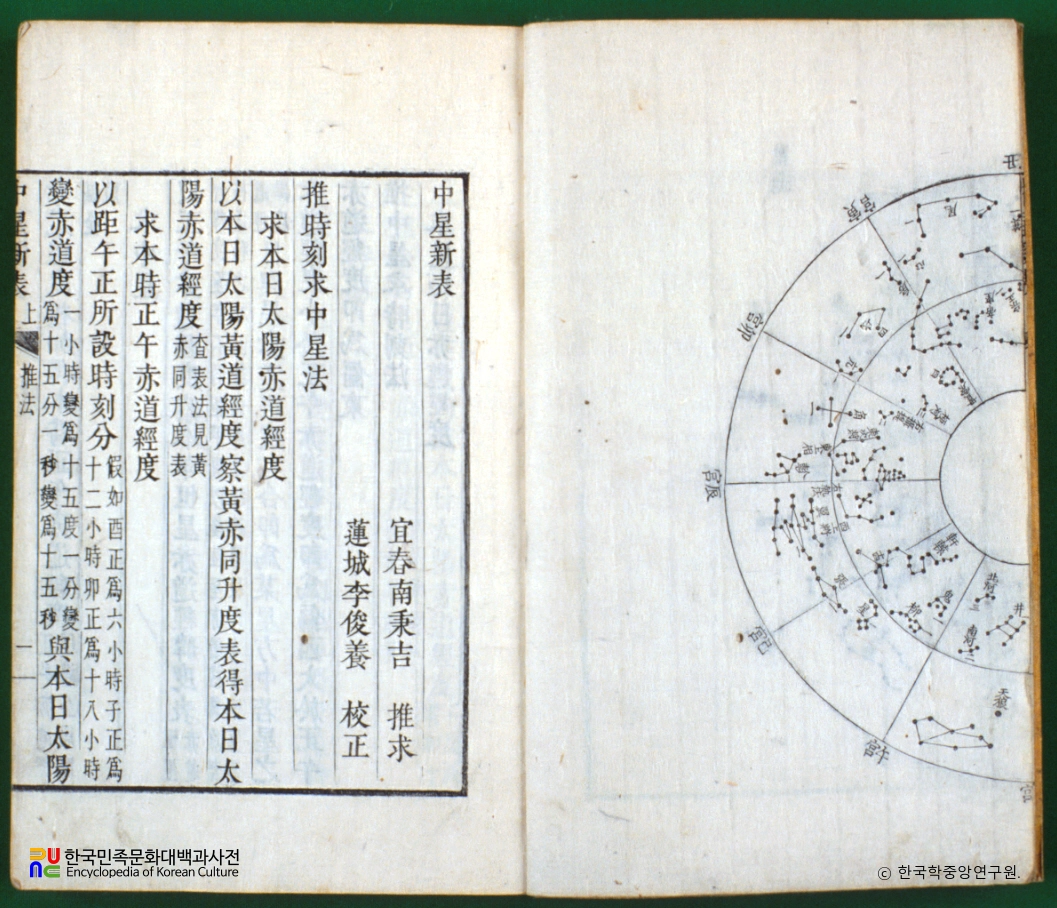 中星新表
宜春南秉吉 推求
蓮城李俊養 校正
推時刻求中星法
求本日太陽赤道經度
以本日太陽黃道經度察黃赤同升度表得本日太
陽赤道經度查表法見黃赤同升度表
求本時正午赤道經度
以距午正所設時刻分假如酉正爲六小時子正爲十二小時卯正爲十八小時
變赤道度一小時變爲十五度一分變爲十五分一秒變爲十五秒與本日太陽
中星新表 上 推法 一
丑
寅宮
卯宮
辰宮
巳宮
午宮
尾
角
軫
翼
張
星
柳
鬼
井
軒轅
天狼
한국민족문화대백과사전
Encyclopedia of Korean Culture
© 한국학중앙연구원.